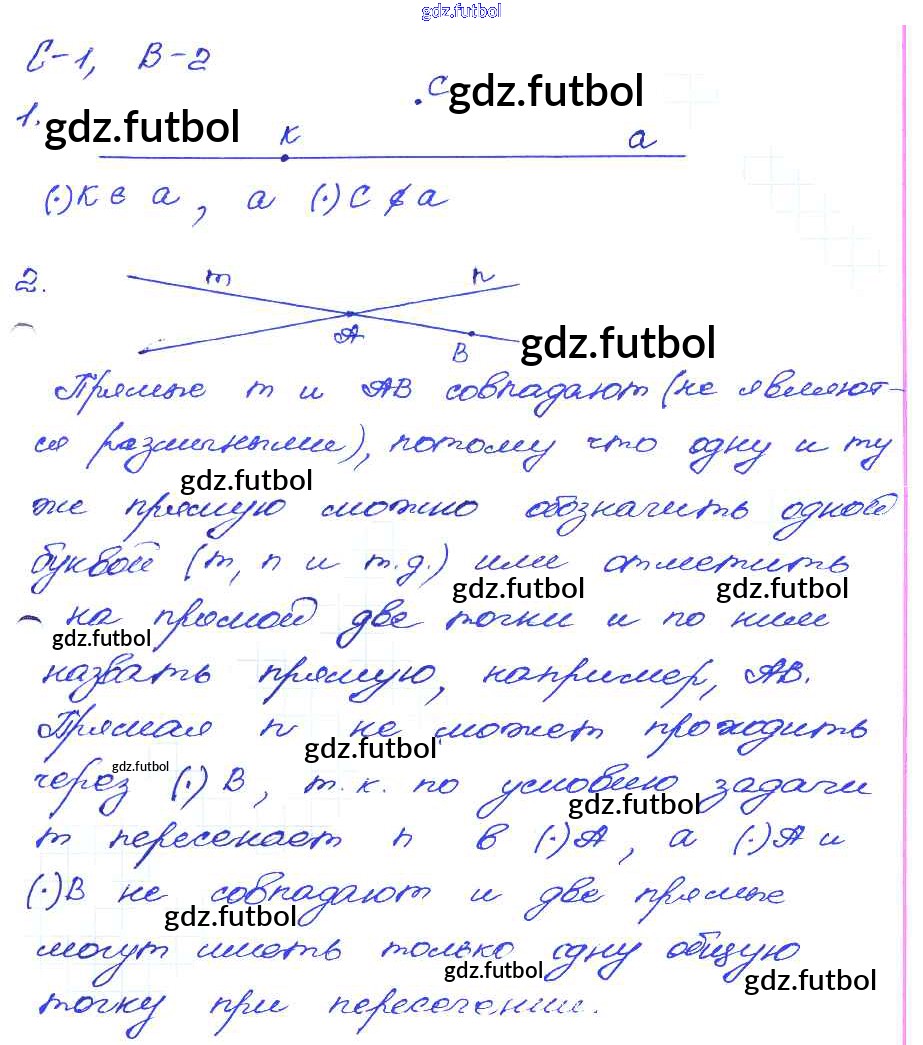 gdz.futbol
С-1, В-2
.C gdz.futbol
1. gdz.futbol K a
(·)K ∈ a, a (·)C ∉ a
2. m n
A B gdz.futbol
Прямые m и AB совпадают (не являют-
ся различными), потому что одну и ту
gdz.futbol
же прямую можно обозначить одной
буквой (m, n и т.д.) или отметить
gdz.futbol gdz.futbol
на прямой две точки и по ним
gdz.futbol
назвать прямую, например, AB.
Прямая n не может проходить
gdz.futbol gdz.futbol
через (·) B, т.к. по условию задачи
gdz.futbol
m пересекает n в (·)A, а (·)A и
(·)B не совпадают и две прямые
gdz.futbol
могут иметь только одну общую
gdz.futbol gdz.futbol
точку при пересечении.